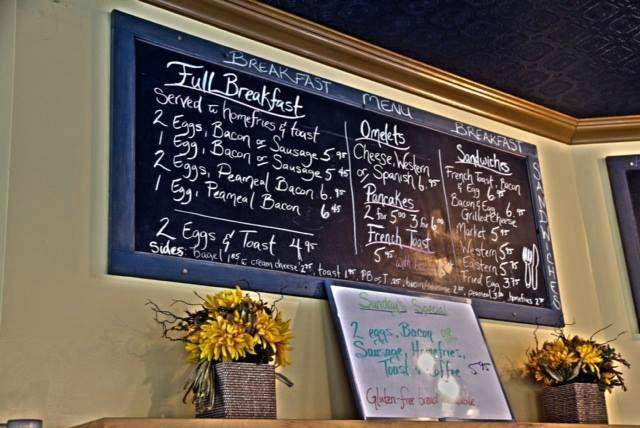 BREAKFAST MENU BREAKFAST
SANDWICHES
Full Breakfast
Served w homefries & toast
2 Eggs, Bacon or Sausage 5.95
1 Egg, Bacon or Sausage 5.45
2 Eggs, Peameal Bacon 6.95
1 Egg, Peameal Bacon 6.45
2 Eggs & Toast 4.95
Omelets
Cheese, Western
or Spanish 6.95
Pancakes
2 for 5.00 3 for 6.00
French Toast
5.95 with
Sandwiches
French Toast, Bacon
& Egg 6.95
Bacon & Egg 6.95
Grilled Cheese
Market 5.95
Western 5.75
Eastern 5.75
Fried Egg 3.75
sides: bagel 1.85 w cream cheese 2.95, toast 1.95, PB or J .25, peameal homefries
Sunday's Special
2 eggs, Bacon or
Sausage, Homefries,
Toast & Coffee 5.95
Gluten-free bread available